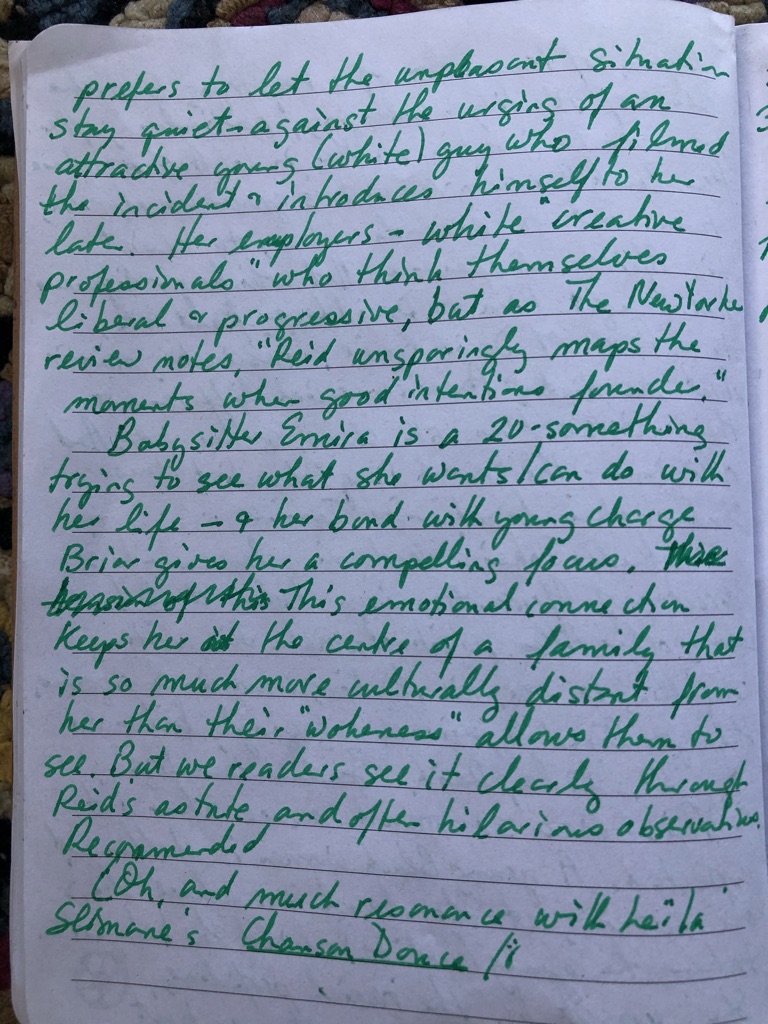 prefers to let the unpleasant situation
stay quiet - against the urging of an
attractive young (white) guy who filmed
the incident & introduces himself to her
later. Her employers - white "creative
professionals" who think themselves
liberal & progressive, but as The New Yorker
review notes, "Reid unsparingly maps the
moments when good intentions founder."
Babysitter Emira is a 20-something
trying to see what she wants/can do with
her life - & her bond with young charge
Briar gives her a compelling focus.
of this This emotional connection
keeps her at the centre of a family that
is so much more culturally distant from
her than their "wokeness" allows them to
see. But we readers see it clearly through
Reid's astute and often hilarious observations.
Recommended
(Oh, and much resonance with Leïla
Slimane's Chanson Douce